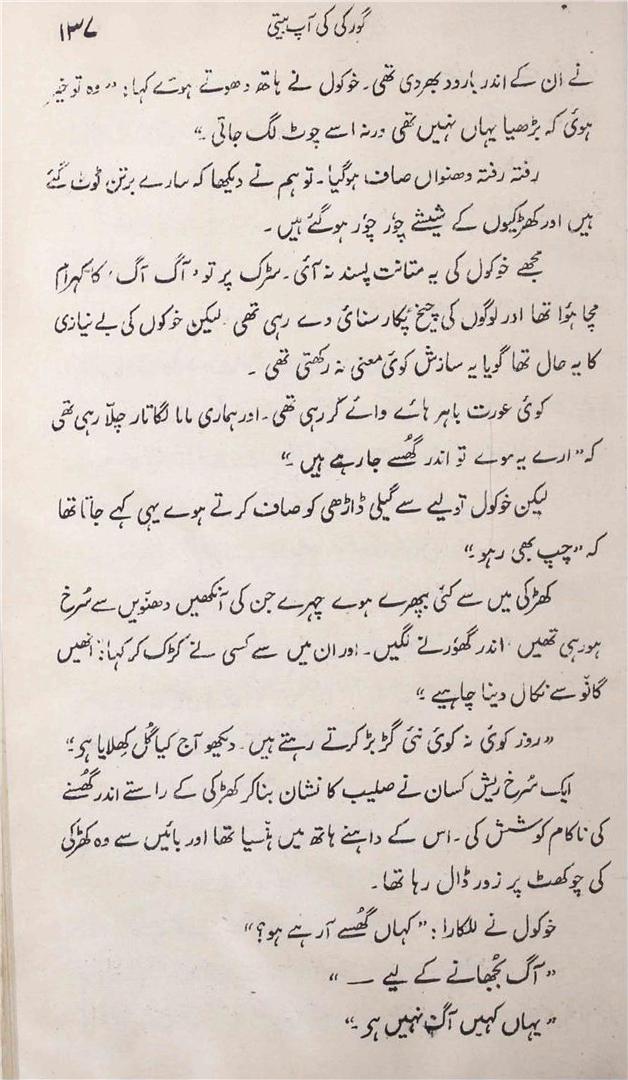 گورکی کی آپ بیتی
۱۳۷
نے ان کے اندر بارود بھردی تھی۔ خوکول نے ہاتھ دھوتے ہوے کہا: ”وہ تو خیر
ہوئ کہ بڑھیا یہاں نہیں تھی ورنہ اسے چوٹ لگ جاتی۔“
رفتہ رفتہ دھنواں صاف ہوگیا۔ تو ہم نے دیکھا کہ سارے برتن ٹوٹ گئے
ہیں اور کھڑکیوں کے شیشے چوٗر چوٗر ہوگئے ہیں۔
مجھے خوکول کی یہ متانت پسند نہ آئی۔ سڑک پر تو ’آگ آگ‘ کا کہرام
مچا ہؤا تھا اور لوگوں کی چیخ پکار سنائ دے رہی تھی لیکن خوکوں کی بے نیازی
کا یہ حال تھا گویا یہ سازش کوئ معنی نہ رکھتی تھی۔
کوئ عورت باہر ہاے واے کر رہی تھی۔ اور ہماری ماما لگاتار چلّا رہی تھی
کہ ”ارے یہ موے تو اندر گھُسے جارہے ہیں۔“
لیکن خوکول تولیے سے گیلی ڈاڑھی کو صاف کرتے ہوے یہی کہے جاتا تھا
کہ ”چپ بھی رہو۔“
کھڑکی میں سے کئ بچھرے ہوے چہرے جن کی آنکھیں دھنّویں سے سُرخ
ہورہی تھیں اندر گھؤرنے لگیں۔ اور ان میں سے کسی نے کڑک کر کہا: ”انھیں
گانّو سے نکال دینا چاہیے۔“
”روز کوئ نہ کوئ نئ گڑبڑ کرتے رہتے ہیں۔ دیکھو آج کیا گُل کھِلایا ہو۔“
ایک سُرخ ریش کسان نے صلیب کا نشان بناکر کھڑکی کے راستے اندر گھُسنے
کی ناکام کوشش کی۔ اس کے داہنے ہاتھ میں ہنّسیا تھا اور بائیں سے وہ کھڑکی
کی چوکھٹ پر زور ڈال رہا تھا۔
خوکول نے للکارا: ”کہاں گھُسے آرہے ہو؟“
”آگ بُجھانے کے لیے —“
”یہاں کہیں آگ نہیں ہو۔“